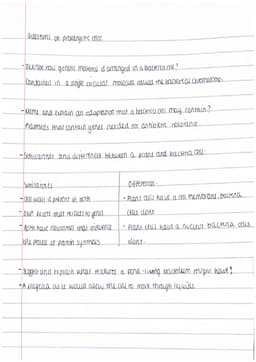 Questions on prokaryotic cells:
- Describe how genetic material is arranged in a bacteria cell?
Contained in a single circular molecule called the bacterial chromosome.
- Name and explain an adaptation that a bacteria cell may contain?
Plasmids that contain genes needed for antibiotic resistance.
- Similarities and differences between a plant and bacteria cell:
Similarities
Differences
- Cell wall is present in both
- Both have ribosomes that influence
the process of protein synthesis
- Plant cells have a cell membrane, bacteria
cells dont
- Plant cells have a nucleus bacteria cells
dont.
- Suggest and explain what features a pond-living bacterium might have?
• A flagella as it would allow the cell to move through liquids.